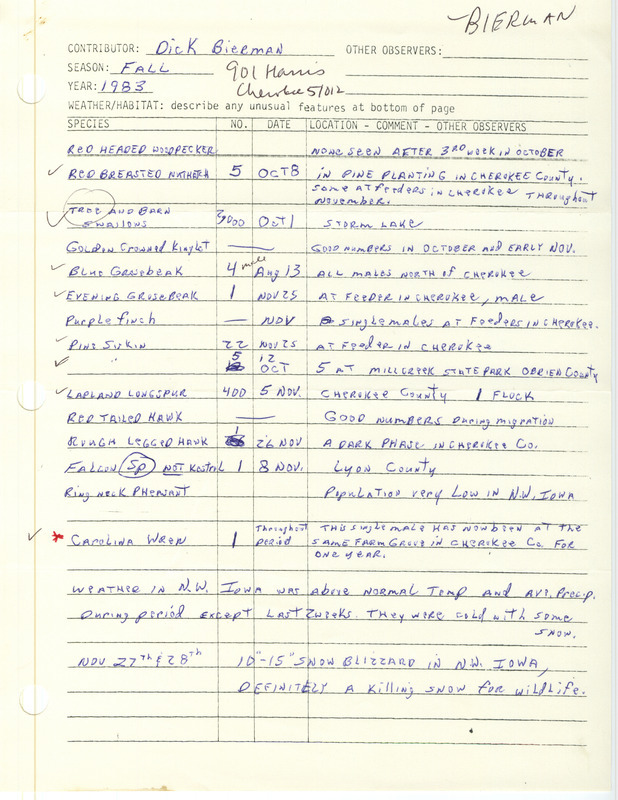 BIERMAN
CONTRIBUTOR: Dick Bierman OTHER OBSERVERS:
SEASON: FALL 901 Harris
YEAR: 1983 Cherokee 51012
WEATHER/HABITAT: describe any unusual features at bottom of page
SPECIES NO. DATE LOCATION - COMMENT - OTHER OBSERVERS
RED HEADED WOODPECKER NONE SEEN AFTER 3RD WEEK IN OCTOBER
✓ RED BREASTED NUTHATCH 5 OCT 8 IN PINE PLANTING IN CHEROKEE COUNTY.
SOME AT FEEDERS IN CHEROKEE THROUGHOUT
NOVEMBER.
✓ TREE AND BARN
SWALLOWS 3000 OCT 1 STORM LAKE
GOLDEN CROWNED KINGLET — GOOD NUMBERS IN OCTOBER AND EARLY NOV.
✓ BLUE GROSBEAK 4 male Aug 13 ALL MALES NORTH OF CHEROKEE
✓ EVENING GROSBEAK 1 NOV 25 AT FEEDER IN CHEROKEE, MALE
Purple finch — NOV SINGLE MALES AT FEEDERS IN CHEROKEE.
✓ PINE SISKIN 22 NOV 25 AT FEEDER IN CHEROKEE
✓ 5 12 OCT 5 AT MILL CREEK STATE PARK OBRIEN COUNTY
✓ LAPLAND LONGSPUR 400 5 NOV. CHEROKEE COUNTY 1 FLOCK
RED TAILED HAWK — GOOD NUMBERS DURING MIGRATION
ROUGH LEGGED HAWK 1 26 NOV A DARK PHASE IN CHEROKEE CO.
FALCON Sp NOT Kestrel 1 8 NOV. LYON COUNTY
Ring neck Pheasant Population very Low in N.W. Iowa
✓ * CAROLINA WREN 1 Throughout period THIS SINGLE MALE HAS NOW BEEN AT THE
SAME FARM GROVE IN CHEROKEE CO. FOR
ONE YEAR.
WEATHER IN N.W. IOWA WAS ABOVE NORMAL Temp AND AVE. Precip.
During period EXCEPT LAST 2 WEEKS. They WERE COLD with some
SNOW.
NOV 27th & 28th 10"-15" SNOW BLIZZARD IN N.W. IOWA,
DEFINITELY A Killing SNOW FOR WILDLIFE.